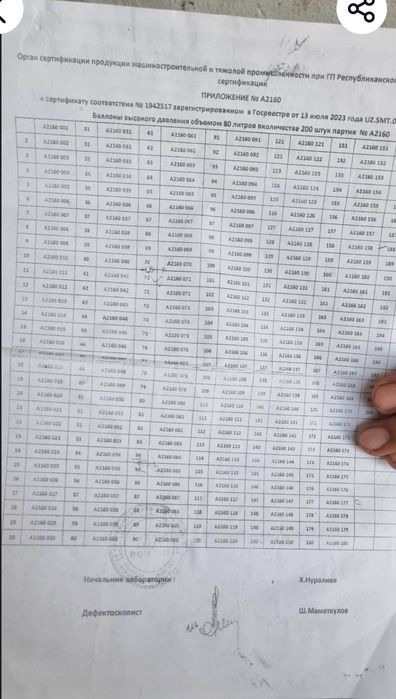 Орган сертификации продукции машиностроительной и тяжолой промышленности при ГП Республиканского
сертификаций
ПРИЛОЖЕНИЕ № А2160
к сертификату соответствия № 1942517 зарегистрированном в Госреестре от 13 июля 2023 года UZ.SMT.0
Баллоны высокого давления объемом 80 литров вколичестве 200 штук партия № А2160
A2160 001 31 A2160 031 61 A2160 061 91 A2160 091 121 A2160 121 151 A2160 151
2 A2160 002 32 A2160 032 62 A2160 062 92 A2160 092 122 A2160 122 152 A2160 152
3 A2160 003 33 A2160 033 63 A2160 063 93 A2160 093 123 A2160 123 153 A2160 153
4 A2160 004 34 A2160 034 64 A2160 064 94 A2160 094 124 A2160 124 154 A2160 154
5 A2160 005 35 A2160 035 65 A2160 065 95 A2160 095 125 A2160 125 155 A2160 155
6 A2160 006 36 A2160 036 66 A2160 066 96 A2160 096 126 A2160 126 156 A2160 156
7 A2160 007 37 A2160 037 67 A2160 067 97 A2160 097 127 A2160 127 157 A2160 157
8 A2160 008 38 A2160 038 68 A2160 068 98 A2160 098 128 A2160 128 158 A2160 158
9 A2160 009 39 A2160 039 69 A2160 069 99 A2160 099 129 A2160 129 159 A2160 159
10 A2160 010 40 A2160 040 70 A2160 070 100 A2160 100 130 A2160 130 160 A2160 160
11 A2160 011 41 A2160 041 71 A2160 071 101 A2160 101 131 A2160 131 161 A2160 161
12 A2160 012 42 A2160 042 72 A2160 072 102 A2160 102 132 A2160 132 162 A2160 162
13 A2160 013 43 A2160 043 73 A2160 073 103 A2160 103 133 A2160 133 163 A2160 163
14 A2160 014 44 A2160 044 74 A2160 074 104 A2160 104 134 A2160 134 164 A2160 164
15 A2160 015 45 A2160 045 75 A2160 075 105 A2160 105 135 A2160 135 165 A2160 165
16 A2160 016 46 A2160 046 76 A2160 076 106 A2160 106 136 A2160 136 166 A2160 166
107 A2160 107 137 A2160 137 167 A2160 167
18 48 A2160 048 78 A2160 078 108 A2160 108 138 A2160 138 168 A2160 168
19 A2160 019 49 A2160 049 79 A2160 079 109 A2160 109 139 A2160 139 169 A2160 169
20 A2160 020 50 A2160 050 80 A2160 080 110 A2160 110 140 A2160 140 170 A2160 170
21 A2160 021 51 A2160 051 81 A2160 081 111 A2160 111 141 A2160 141 171 A2160 171
22 A2160 022 52 A2160 052 82 A2160 082 112 A2160 112 142 A2160 142 172 A2160 172
23 A2160 023 53 A2160 053 83 A2160 083 113 A2160 113 143 A2160 143 173 A2160 173
24 A2160 024 54 A2160 054 84 A2160 084 114 A2160 114 144 A2160 144 174 A2160 174
25 A2160 025 55 A2160 055 85 A2160 085 115 A2160 115 145 A2160 145 175 A2160 175
26 A2160 026 56 A2160 056 86 A2160 086 116 A2160 116 146 A2160 146 176 A2160 176
27 A2160 027 57 A2160 057 87 A2160 087 117 A2160 117 147 A2160 147 177 A2160 177
28 A2160 028 58 A2160 058 88 A2160 088 118 A2160 118 148 A2160 148 178 A2160 178
29 A2160 029 59 A2160 059 89 A2160 089 119 A2160 119 149 A2160 149 179 A2160 179
30 A2160 030 60 A2160 060 90 A2160 090 120 A2160 120 150 A2160 150 180 A2160 180
Начальник лаборатории : Х.Нуралиев
Дефектоскопист Ш.Маматкулов